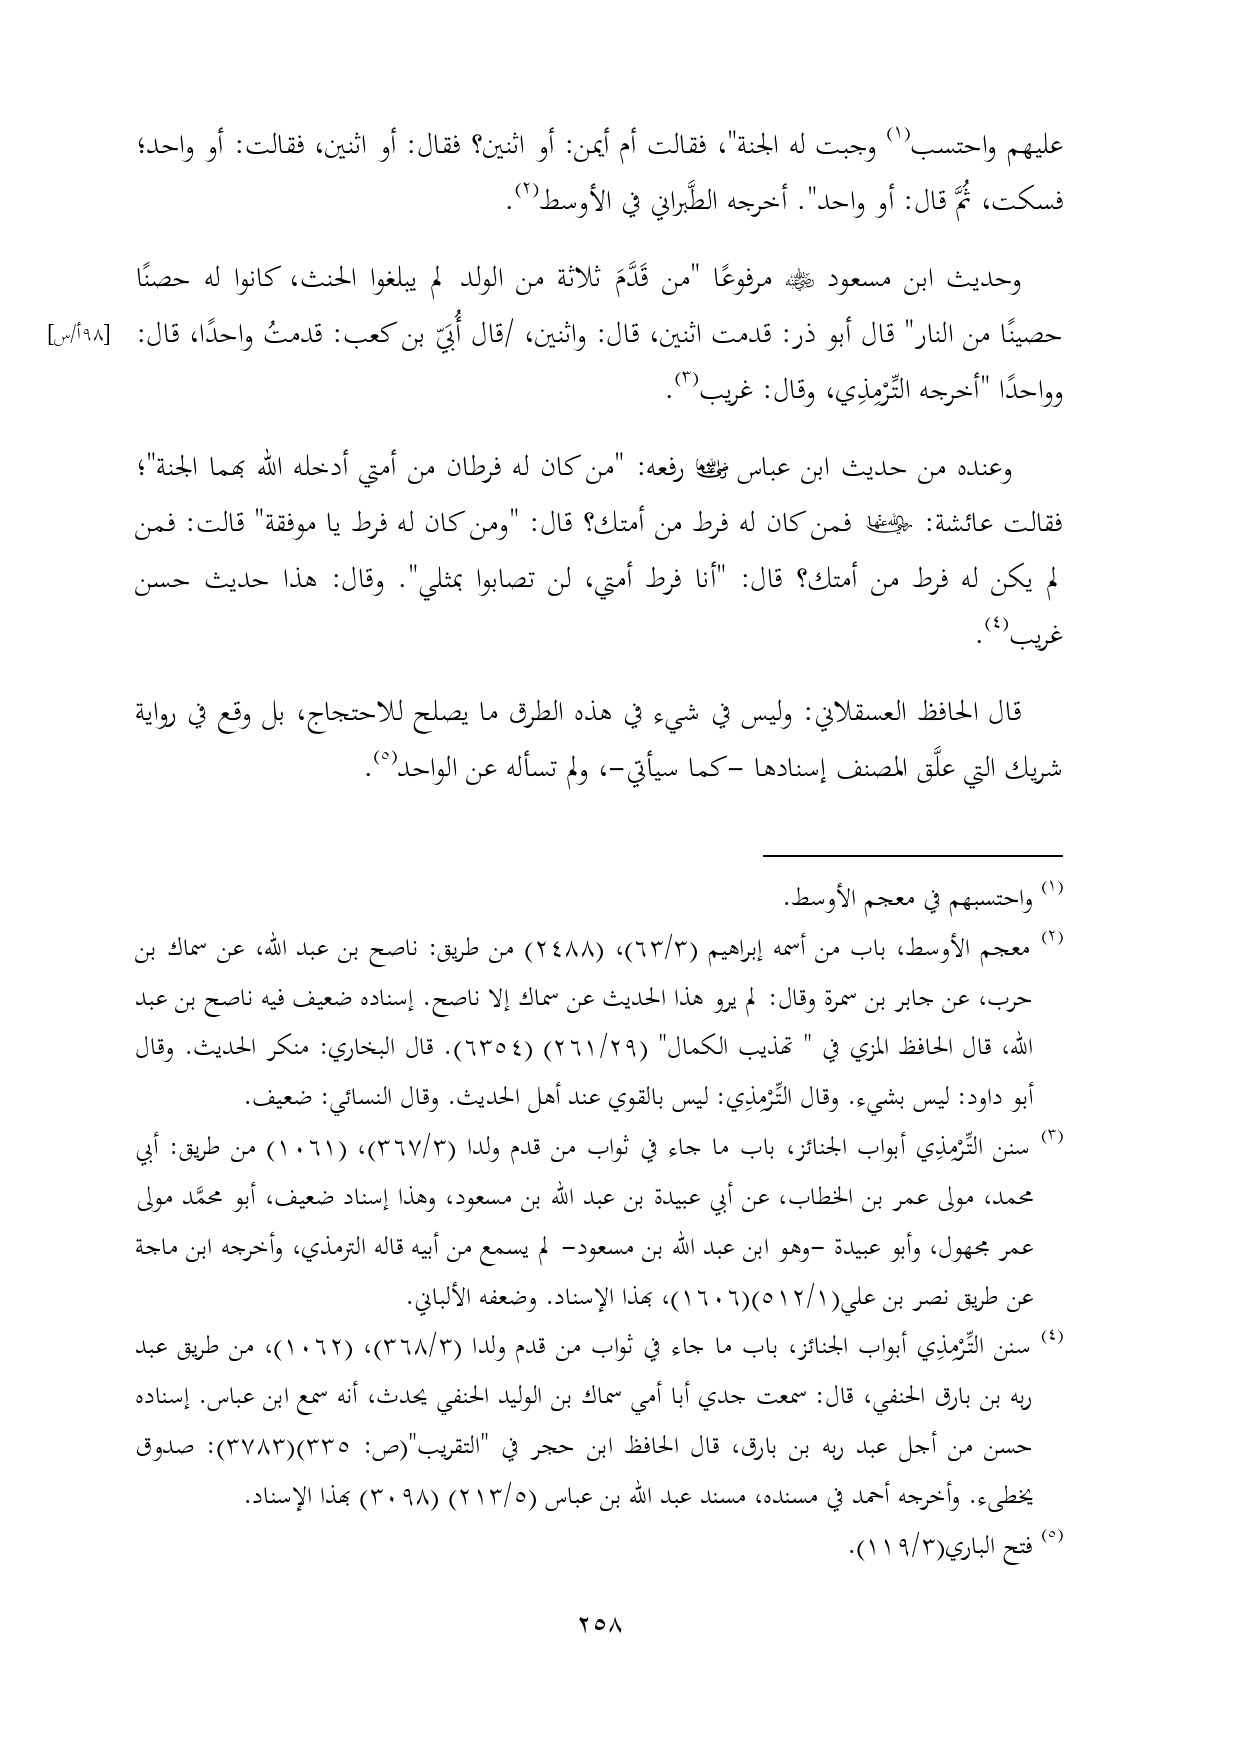 عليهم واحتسب(١) وجبت له الجنة"، فقالت أم أيمن: أو اثنين؟ فقال: أو اثنين، فقالت: أو واحد؛
فسكت، ثُمَّ قال: أو واحد". أخرجه الطَّبراني في الأوسط(٢).
وحديث ابن مسعود ﵁ مرفوعًا "من قَدَّمَ ثلاثة من الولد لم يبلغوا الحنث، كانوا له حصنًا
حصينًا من النار" قال أبو ذر: قدمت اثنين، قال: واثنين، /قال أُبَيّ بن كعب: قدمتُ واحدًا، قال: [٩٨أ/س]
وواحدًا "أخرجه التِّرْمِذِي، وقال: غريب(٣).
وعنده من حديث ابن عباس ﵄ رفعه: "من كان له فرطان من أمتي أدخله الله بهما الجنة"؛
فقالت عائشة: ﵂ فمن كان له فرط من أمتك؟ قال: "ومن كان له فرط يا موفقة" قالت: فمن
لم يكن له فرط من أمتك؟ قال: "أنا فرط أمتي، لن تصابوا بمثلي". وقال: هذا حديث حسن
غريب(٤).
قال الحافظ العسقلاني: وليس في شيء في هذه الطرق ما يصلح للاحتجاج، بل وقع في رواية
شريك التي علَّق المصنف إسنادها –كما سيأتي–، ولم تسأله عن الواحد(٥).
(١) واحتسبهم في معجم الأوسط.
(٢) معجم الأوسط، باب من أسمه إبراهيم (٦٣/٣)، (٢٤٨٨) من طريق: ناصح بن عبد الله، عن سماك بن
حرب، عن جابر بن سمرة وقال: لم يرو هذا الحديث عن سماك إلا ناصح. إسناده ضعيف فيه ناصح بن عبد
الله، قال الحافظ المزي في " تهذيب الكمال" (٢٦١/٢٩) (٦٣٥٤). قال البخاري: منكر الحديث. وقال
أبو داود: ليس بشيء. وقال التِّرْمِذِي: ليس بالقوي عند أهل الحديث. وقال النسائي: ضعيف.
(٣) سنن التِّرْمِذِي أبواب الجنائز، باب ما جاء في ثواب من قدم ولدا (٣٦٧/٣)، (١٠٦١) من طريق: أبي
محمد، مولى عمر بن الخطاب، عن أبي عبيدة بن عبد الله بن مسعود، وهذا إسناد ضعيف، أبو محمَّد مولى
عمر مجهول، وأبو عبيدة –وهو ابن عبد الله بن مسعود– لم يسمع من أبيه قاله الترمذي، وأخرجه ابن ماجة
عن طريق نصر بن علي(٥١٢/١)(١٦٠٦)، بهذا الإسناد. وضعفه الألباني.
(٤) سنن التِّرْمِذِي أبواب الجنائز، باب ما جاء في ثواب من قدم ولدا (٣٦٨/٣)، (١٠٦٢)، من طريق عبد
ربه بن بارق الحنفي، قال: سمعت جدي أبا أمي سماك بن الوليد الحنفي يحدث، أنه سمع ابن عباس. إسناده
حسن من أجل عبد ربه بن بارق، قال الحافظ ابن حجر في "التقريب"(ص: ٣٣٥)(٣٧٨٣): صدوق
يخطىء. وأخرجه أحمد في مسنده، مسند عبد الله بن عباس (٢١٣/٥) (٣٠٩٨) بهذا الإسناد.
(٥) فتح الباري(١١٩/٣).
٢٥٨